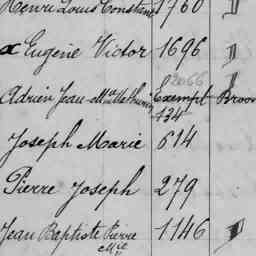 Henri Louis Constant 1760 "
x Eugène Victor 1696 "
2066
Adrien Jean-Mie Mathurin Exempt Broon
434
Joseph Marie 614
Pierre Joseph 279
Jean Baptiste Pierre 1146 "
Mie